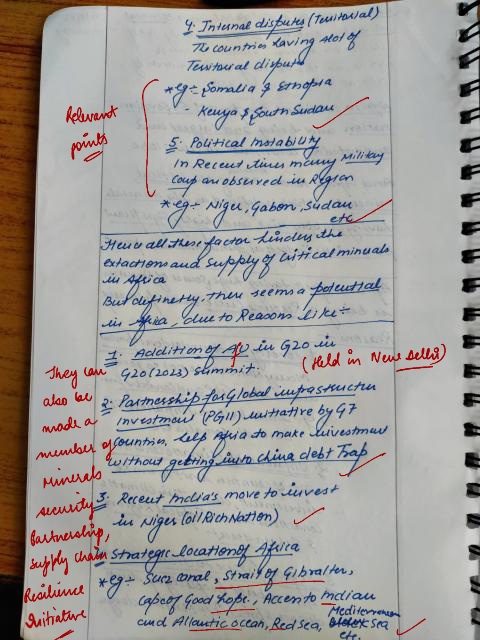 4. Internal disputes (Territorial)
The countries having alot of
Territorial dispute
*eg÷ Somalia & Ethopia
- Kenya & South Sudan
Relevant
points
5. Political Instability
in Recent times many Military
Coup an observed in Region
*eg÷ Niger, Gabon, Sudan
etc
Hence all these factor hinders the
extactions and supply of Critical minerals
in Africa
But definetly, there seems a potential
in Africa, due to Reasons like÷
1. Addition of AU in G20 in
G20 (2023) summit. (Held in New Delhi)
2. Partnership for Global infrastructer
investment (PGII) initiative by G7
Countries, help Africa to make investment
without getting into China debt Trap
3. Recent India's move to invest
in Niger (oil Rich Nation)
Strategic location of Africa
*eg÷ Suez canal, Strait of Gibralter,
cape of Good hope, Access to Indian
and Atlantic ocean, Red sea, Mediterranean sea
etc.
They can
also be
made a
member of
Minerals
security
Partnership,
Supply chain
Resilience
Initiative